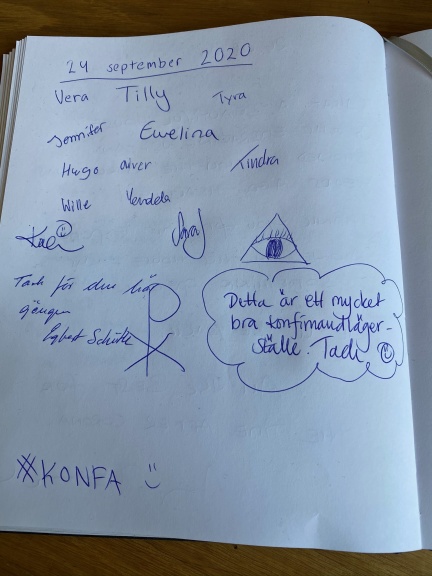 24 september 2020
Vera Tilly Tyra
Jennifer Ewelina
Hugo Oliver Tindra
Wille Vendela
Tack för den här
gången
Detta är ett mycket
bra konfirmandläger-
ställe. Tack
#KONFA :)